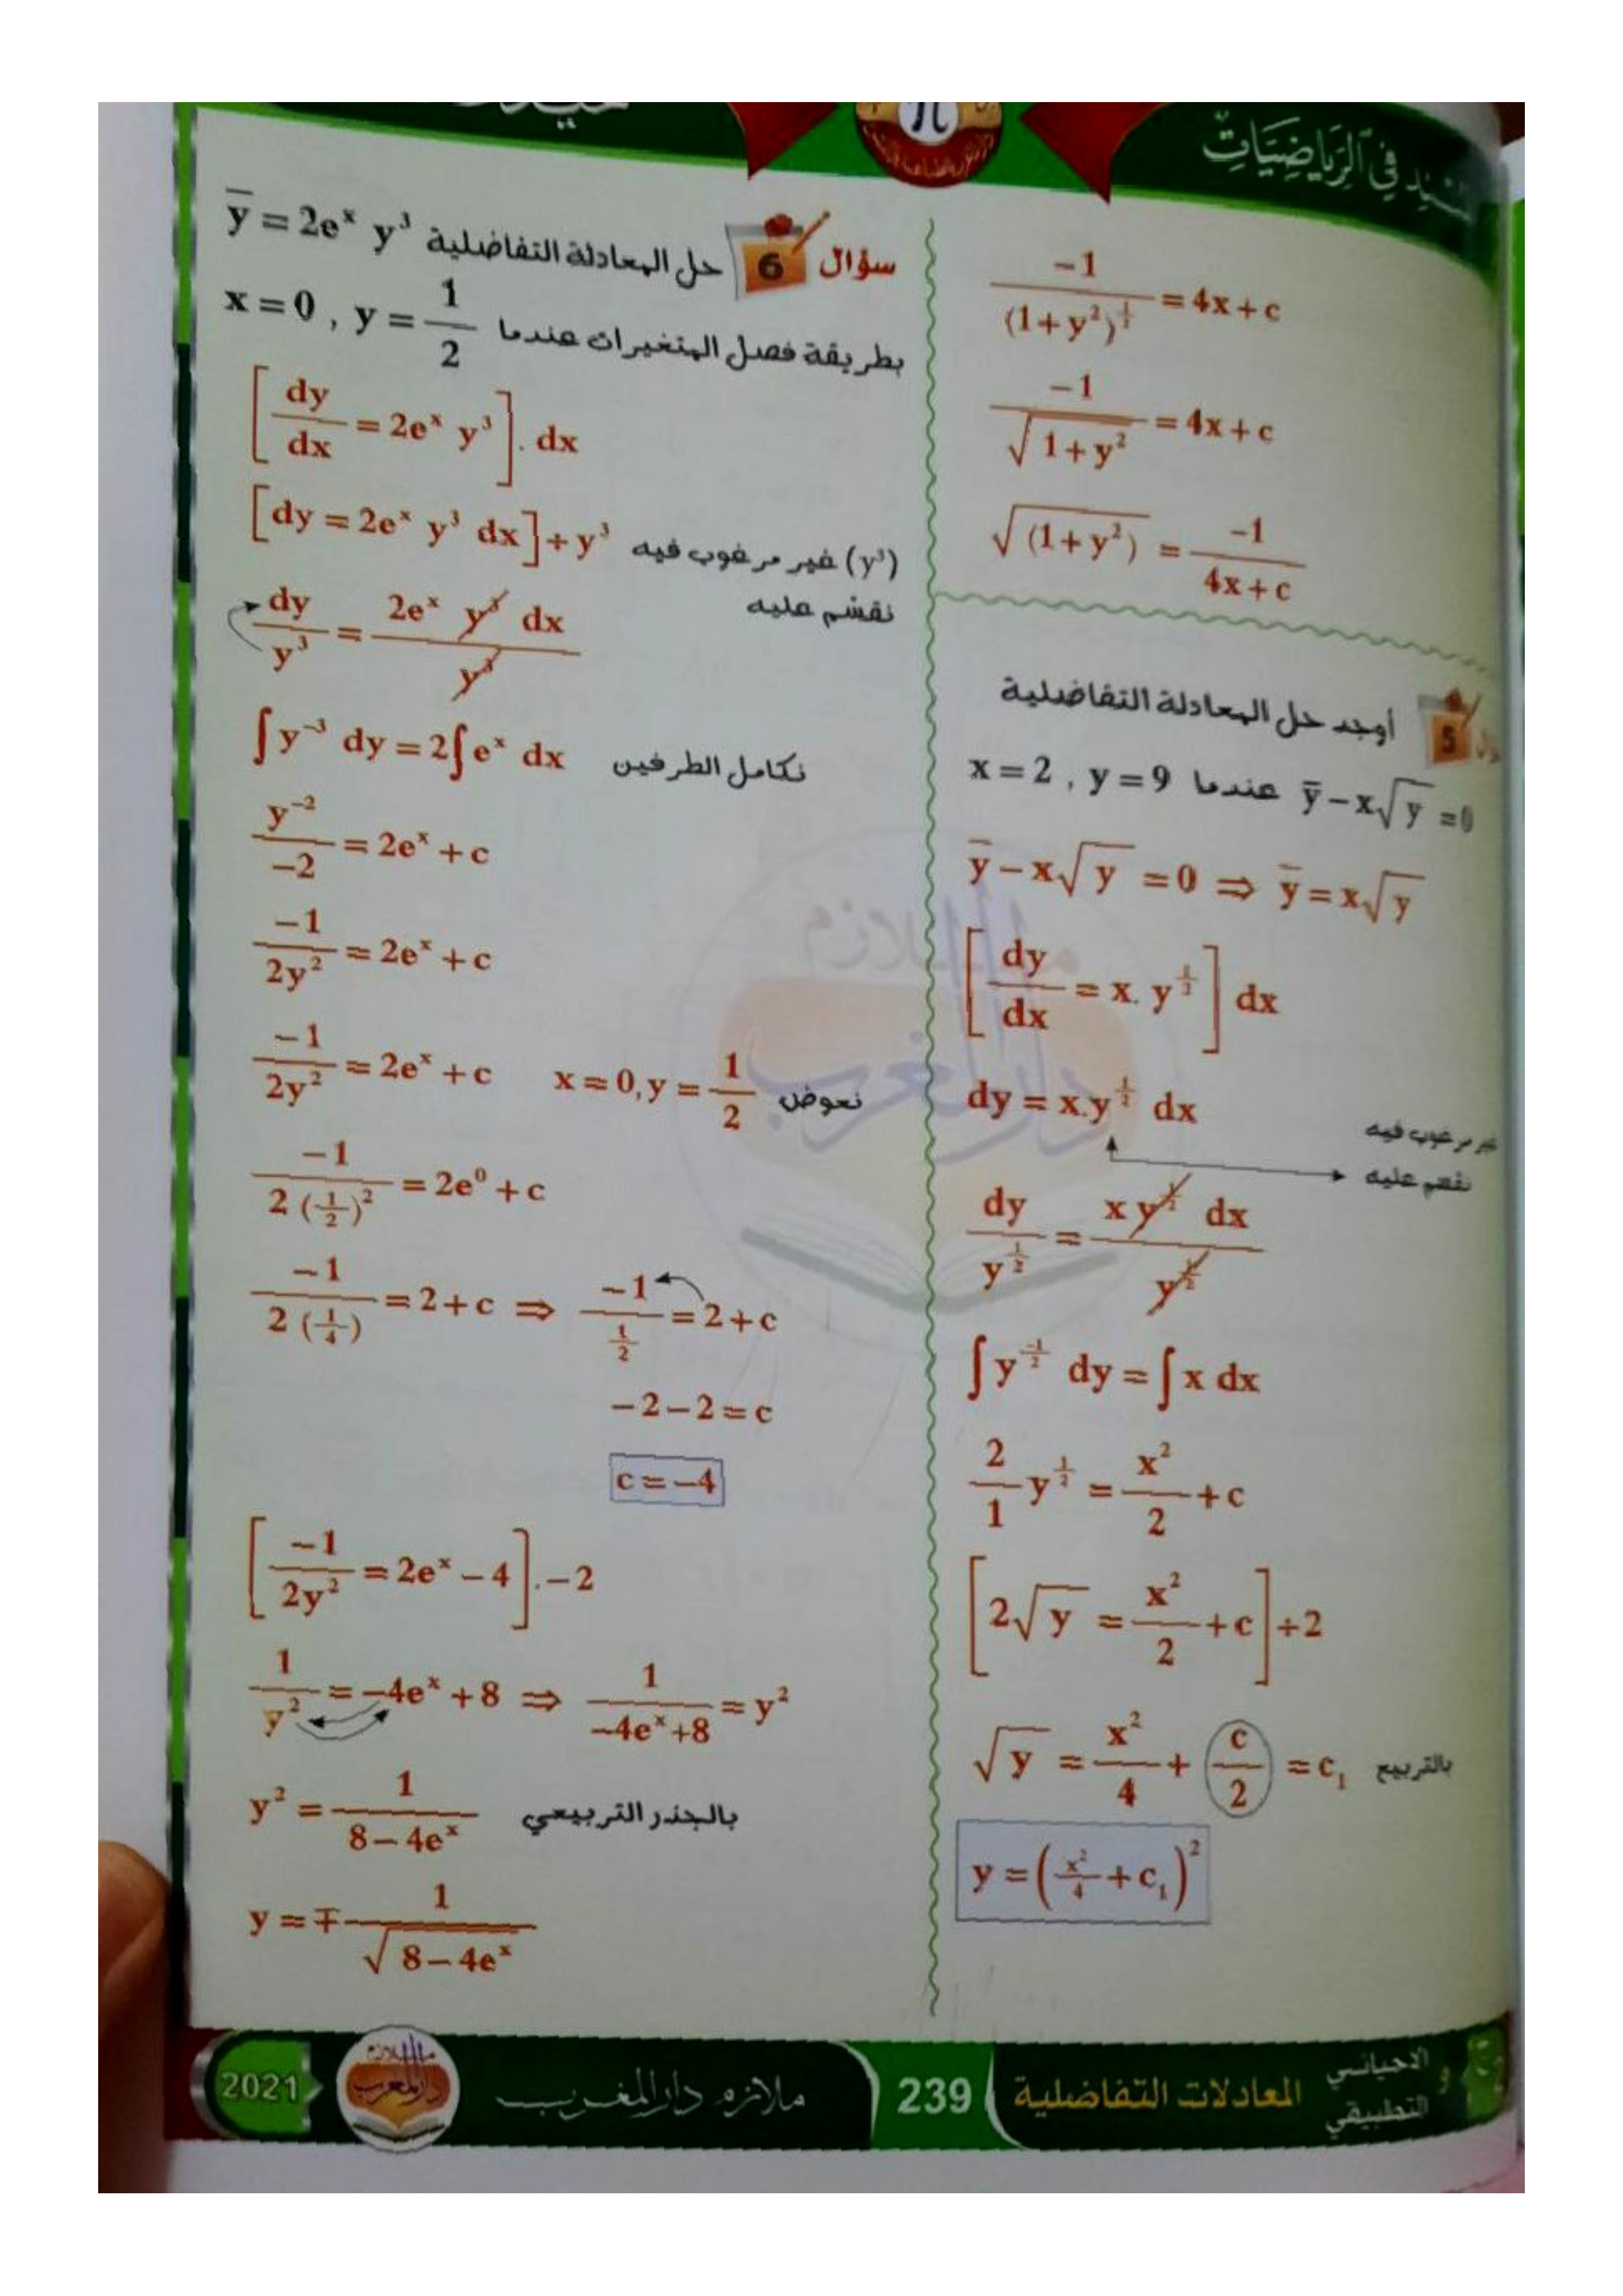 في الرياضيات
$\frac{-1}{(1+y^2)^{\frac{1}{2}}} = 4x+c$
$\frac{-1}{\sqrt{1+y^2}} = 4x+c$
$\sqrt{(1+y^2)} = \frac{-1}{4x+c}$
5 أوجد حل المعادلة التفاضلية
$\overline{y} - x\sqrt{y} = 0$ عندما $x=2 , y=9$
$\overline{y} - x\sqrt{y} = 0 \Rightarrow \overline{y} = x\sqrt{y}$
$\left[\frac{dy}{dx} = x. y^{\frac{1}{2}}\right] dx$
$dy = x.y^{\frac{1}{2}} dx$
غير مرغوب فيه
نقسم عليه
$\frac{dy}{y^{\frac{1}{2}}} = \frac{x y^{\frac{1}{2}} dx}{y^{\frac{1}{2}}}$
$\int y^{\frac{-1}{2}} dy = \int x dx$
$\frac{2}{1} y^{\frac{1}{2}} = \frac{x^2}{2} + c$
$\left[2\sqrt{y} = \frac{x^2}{2} + c\right] \div 2$
$\sqrt{y} = \frac{x^2}{4} + \frac{c}{2} = c_1$ بالتربيع
$y = \left(\frac{x^2}{4} + c_1\right)^2$
سؤال 6 حل المعادلة التفاضلية $\overline{y} = 2e^x y^3$
بطريقة فصل المتغيرات عندما $x=0 , y=\frac{1}{2}$
$\left[\frac{dy}{dx} = 2e^x y^3\right]. dx$
$[dy = 2e^x y^3 dx] \div y^3$ $(y^3)$ غير مرغوب فيه
نقسم عليه
$\frac{dy}{y^3} = \frac{2e^x y^3 dx}{y^3}$
$\int y^{-3} dy = 2\int e^x dx$ نكامل الطرفين
$\frac{y^{-2}}{-2} = 2e^x + c$
$\frac{-1}{2y^2} = 2e^x + c$
$\frac{-1}{2y^2} = 2e^x + c$ $x=0, y=\frac{1}{2}$ نعوض
$\frac{-1}{2(\frac{1}{2})^2} = 2e^0 + c$
$\frac{-1}{2(\frac{1}{4})} = 2+c \Rightarrow \frac{-1}{\frac{1}{2}} = 2+c$
$-2-2 = c$
$c = -4$
$\left[\frac{-1}{2y^2} = 2e^x - 4\right].-2$
$\frac{1}{y^2} = -4e^x + 8 \Rightarrow \frac{1}{-4e^x+8} = y^2$
$y^2 = \frac{1}{8-4e^x}$ بالجذر التربيعي
$y = \mp\frac{1}{\sqrt{8-4e^x}}$
الاحيائي و التطبيقي
المعادلات التفاضلية
239
ملازم دار المغرب
ملازم دار المغرب
2021